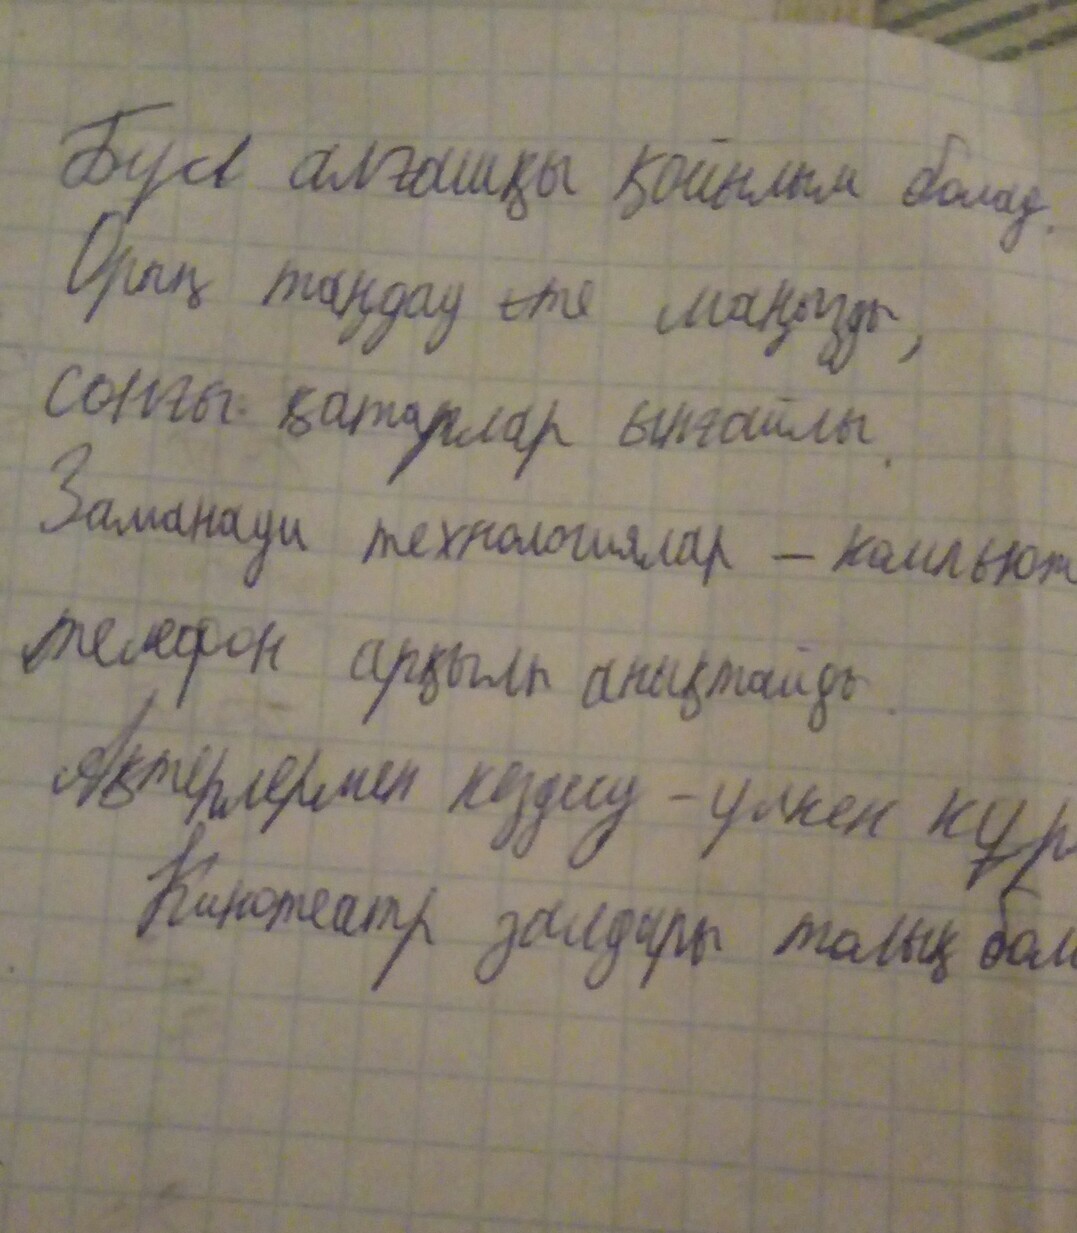 Бұл алғашқы қойылым болад.
Орың таңдау өте маңызды,
соңғы қатарлар ыңғайлы.
Заманауи технологиялар – компьют
телефон арқылы анықтайды.
Актерлермен кездесу – үлкен құр
Кинотеатр залдары толық бол